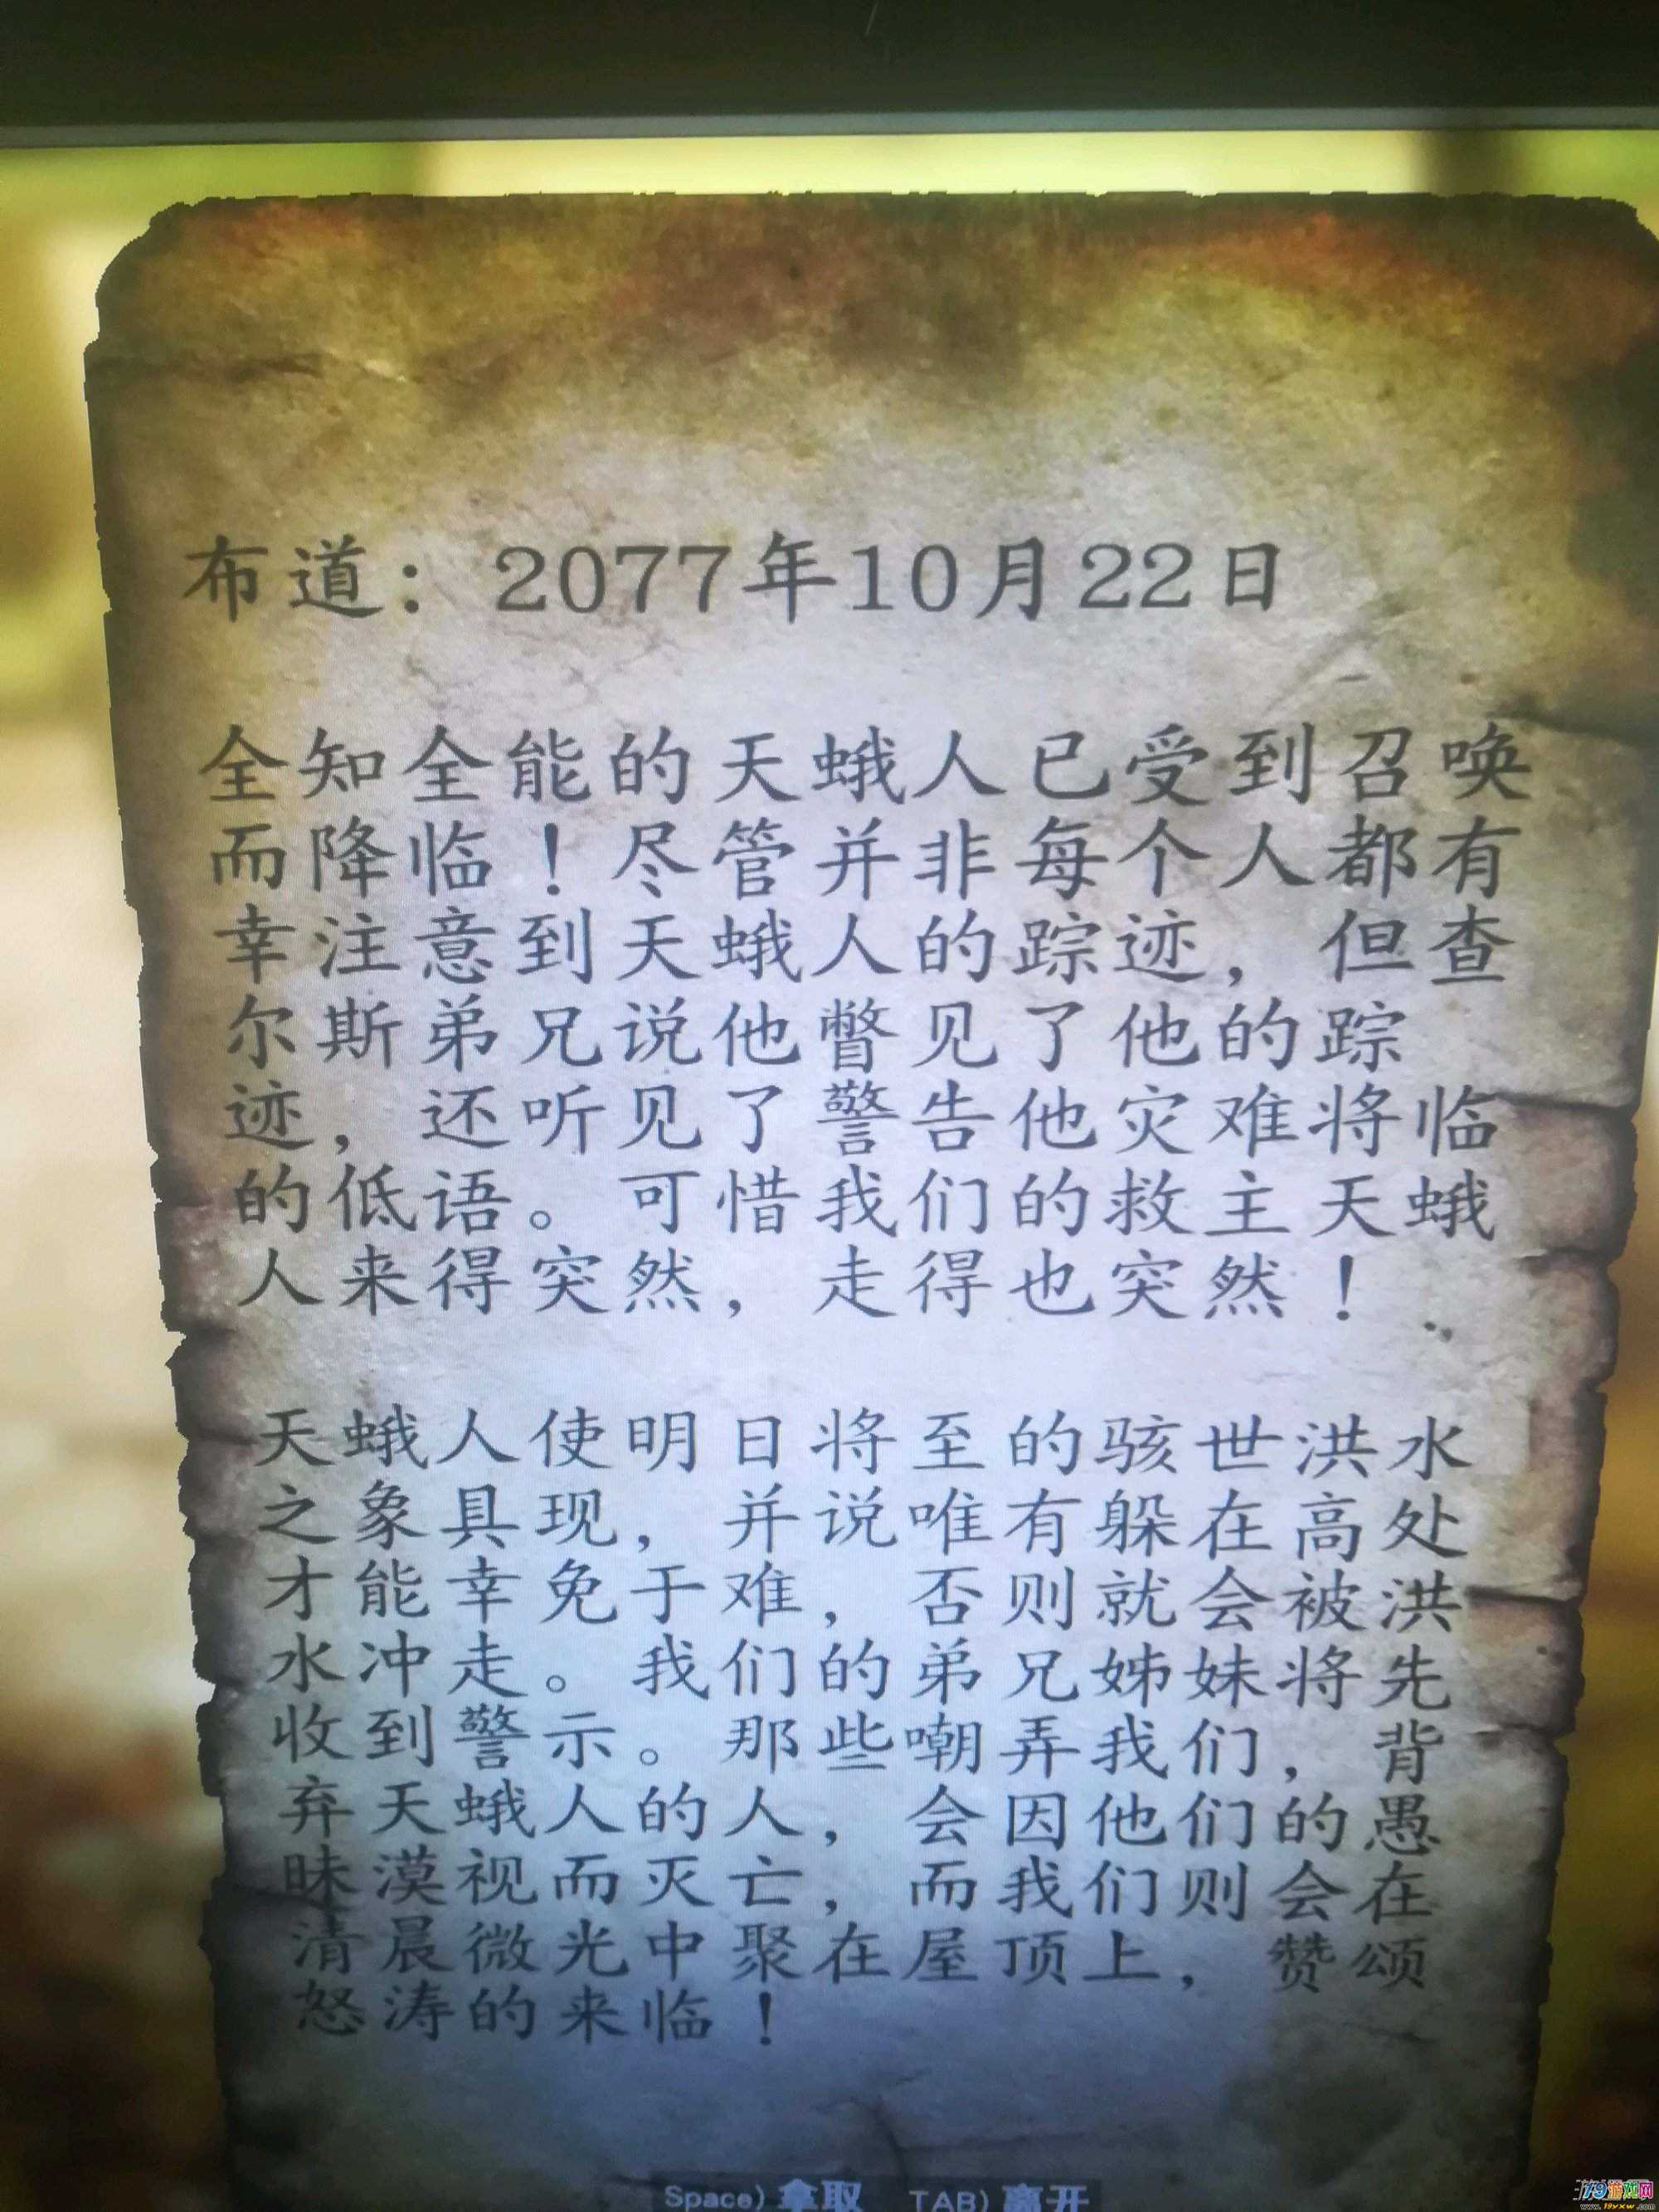 布道：2077年10月22日
全知全能的天蛾人已受到召唤
而降临！尽管并非每个人都有
幸注意到天蛾人的踪迹，但查
尔斯弟兄说他瞥见了他的踪
迹，还听见了警告他灾难将临
的低语。可惜我们的救主天蛾
人来得突然，走得也突然！
天蛾人使明日将至的骇世洪水
之象具现，并说唯有躲在高处
才能幸免于难，否则就会被洪
水冲走。我们的弟兄姊妹将先
收到警示。那些嘲弄我们，背
弃天蛾人的人，会因他们的愚
昧漠视而灭亡，而我们则会在
清晨微光中聚在屋顶上，赞颂
怒涛的来临！
Space) 拿取 TAB) 离开
79游戏网
www.79yxw.com